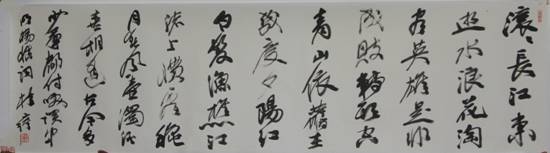 滚滚長江東
逝水浪花淘
盡英雄是非
成敗轉頭空
青山依舊在
幾度夕陽红
白髮漁樵江
渚上慣看秋
月春風一壺濁酒
喜相逢古今多
少事都付笑談中
明楊慎詞